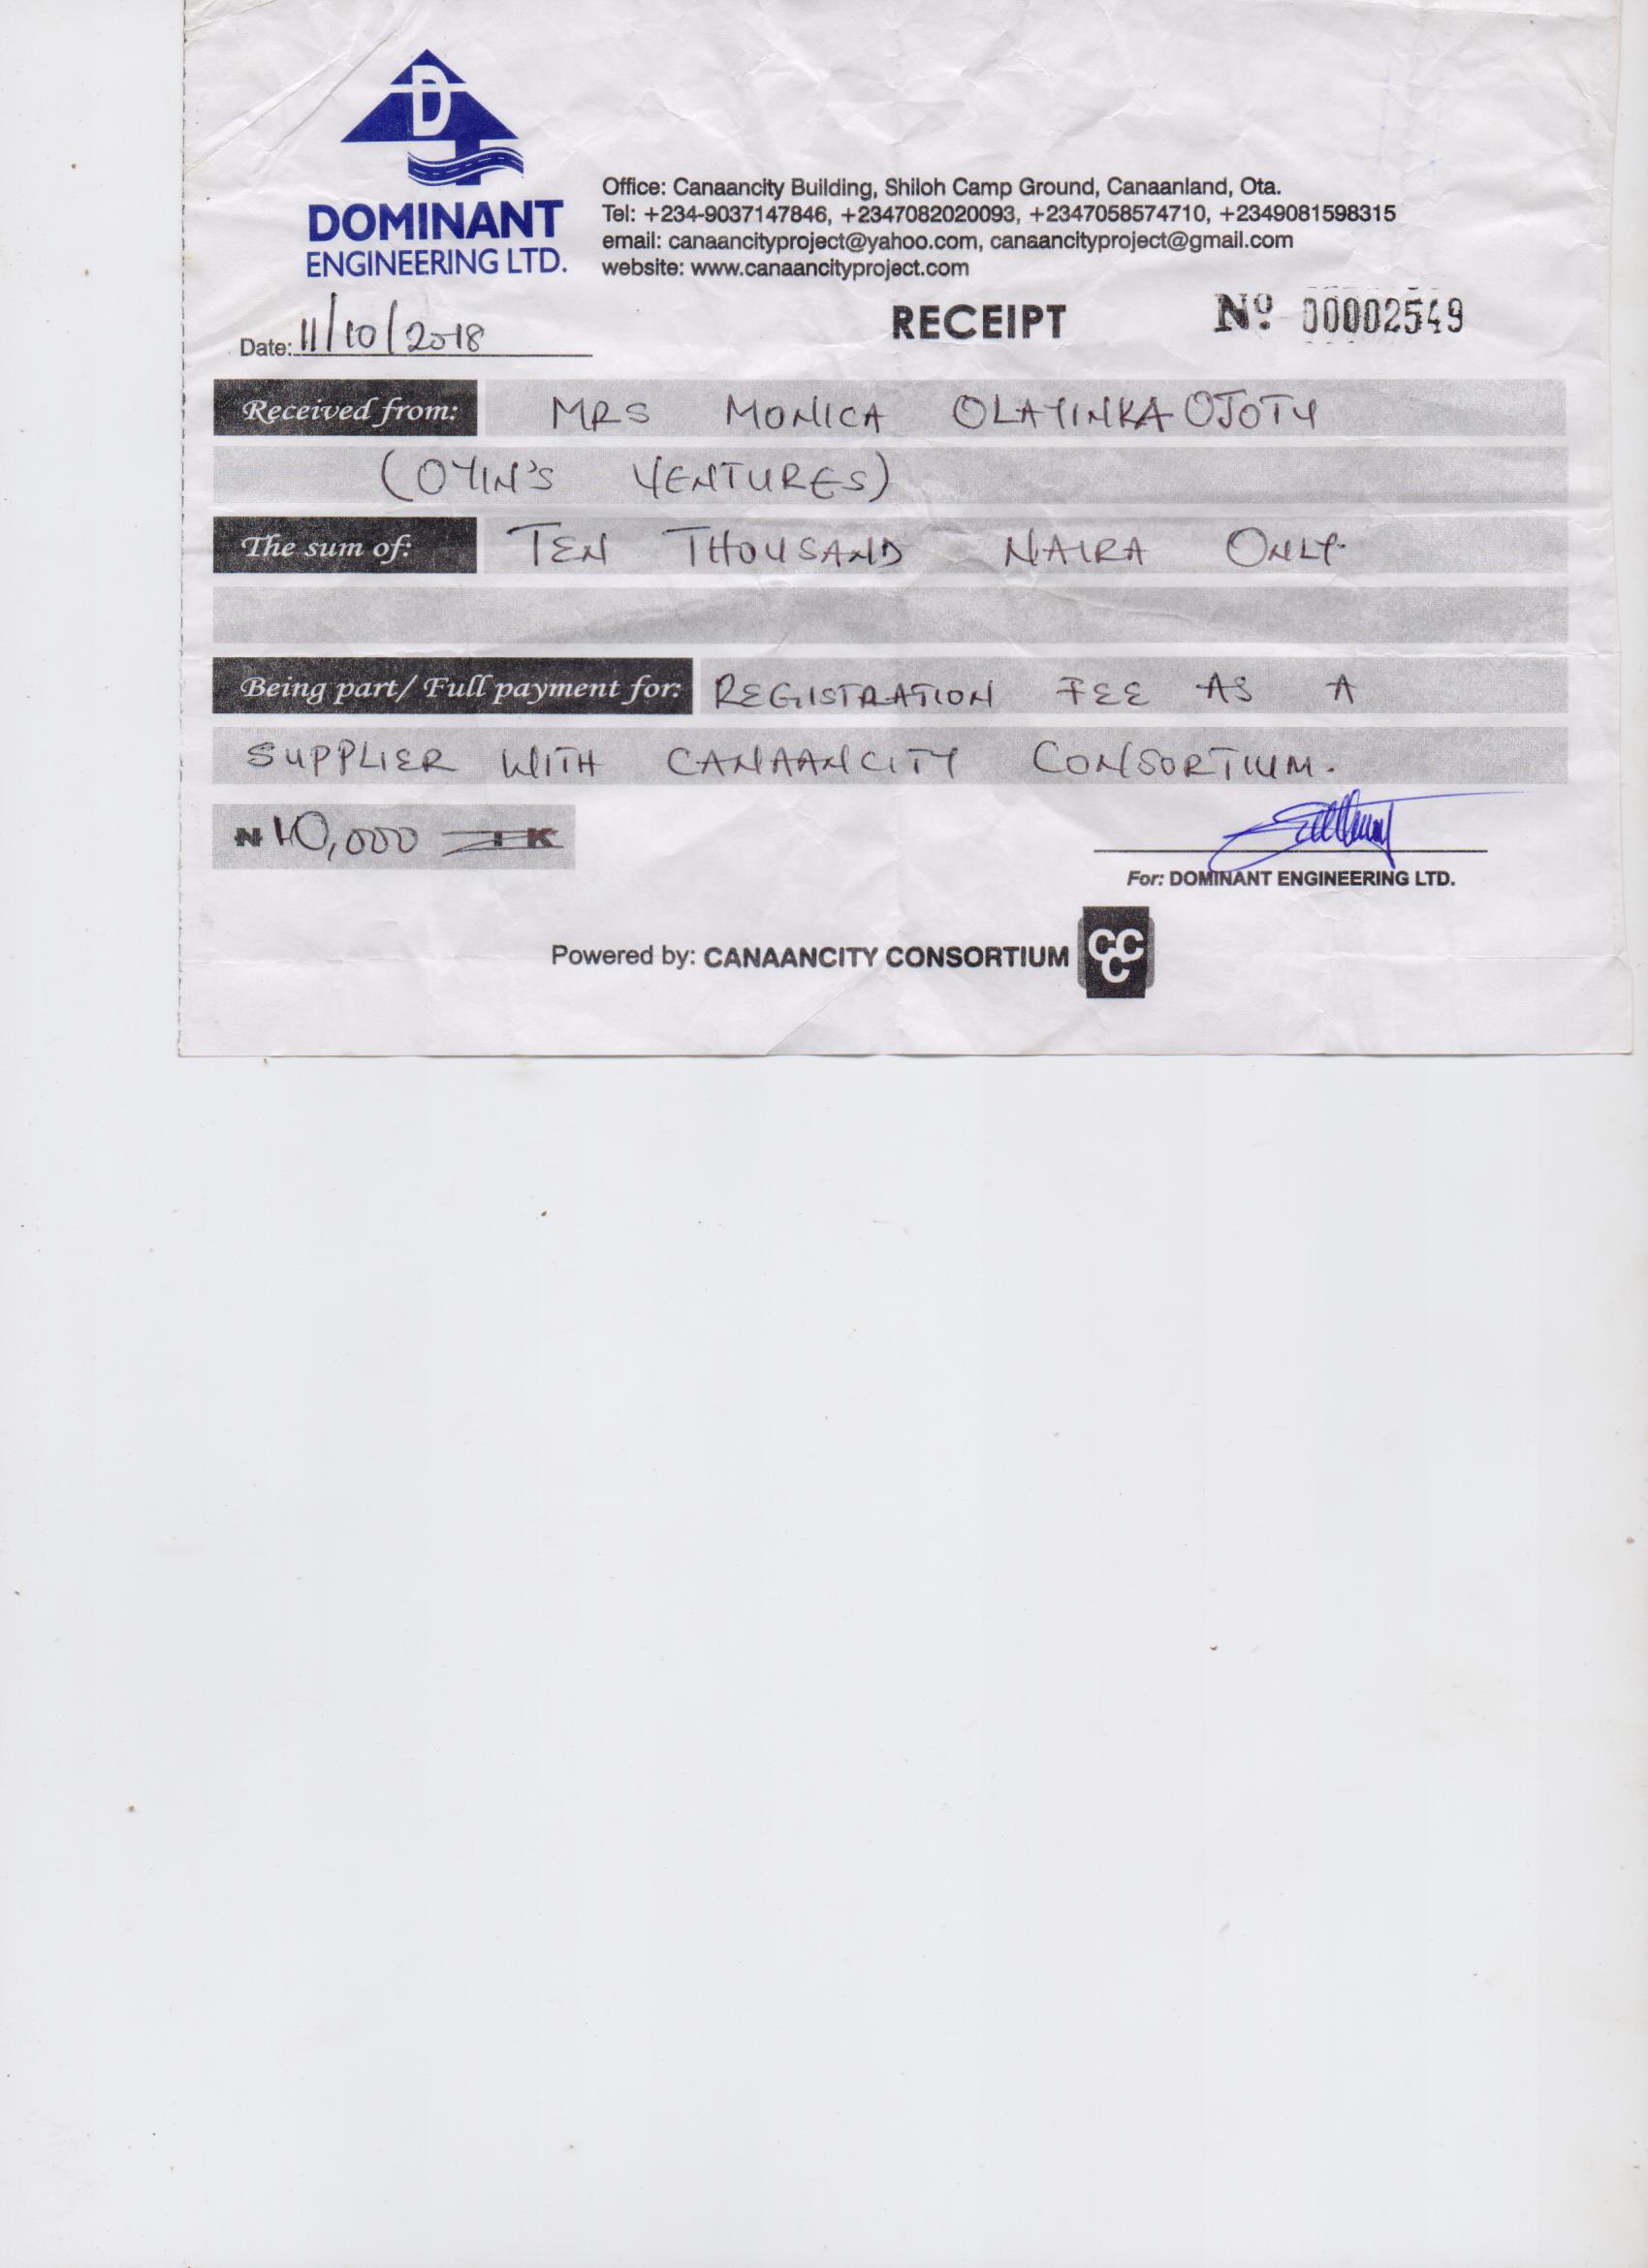 D
DOMINANT
ENGINEERING LTD.
Office: Canaancity Building, Shiloh Camp Ground, Canaanland, Ota.
Tel: +234-9037147846, +2347082020093, +2347058574710, +2349081598315
email: canaancityproject@yahoo.com, canaancityproject@gmail.com
website: www.canaancityproject.com
Date: 11/10/2018
RECEIPT
Nº 00002549
Received from: MRS MONICA OLAYINKA OJOTY
(OYIN'S VENTURES)
The sum of: TEN THOUSAND NAIRA ONLY
Being part/ Full payment for: REGISTRATION FEE AS A
SUPPLIER WITH CANAANCITY CONSORTIUM.
₦ 10,000 = K
For: DOMINANT ENGINEERING LTD.
Powered by: CANAANCITY CONSORTIUM CCC